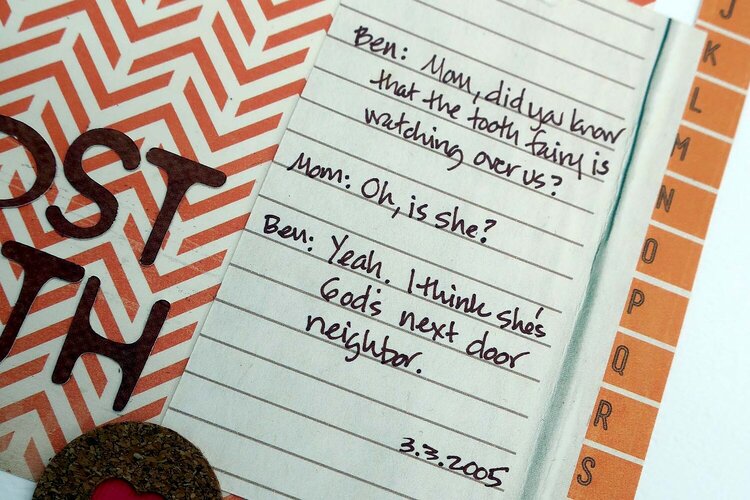 OST
TH
Ben: Mom, did you know
that the tooth fairy is
watching over us?
Mom: Oh, is she?
Ben: Yeah. I think she's
God's next door
neighbor.
3.3.2005
J
K
L
M
N
O
P
Q
R
S